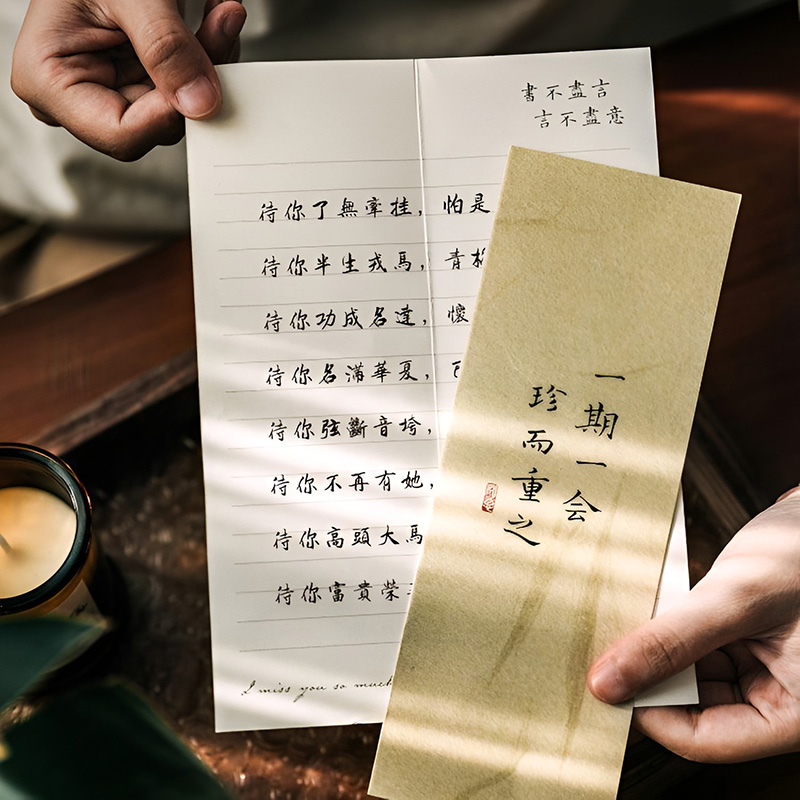 書不盡言
言不盡意
待你了無牽挂，怕是
待你半生戎馬，青
待你功成名達，懷
待你名滿華夏，
待你弦斷音垮，
待你不再有她，
待你高頭大馬
待你富貴榮
I miss you so much
一期一会
珍而重之